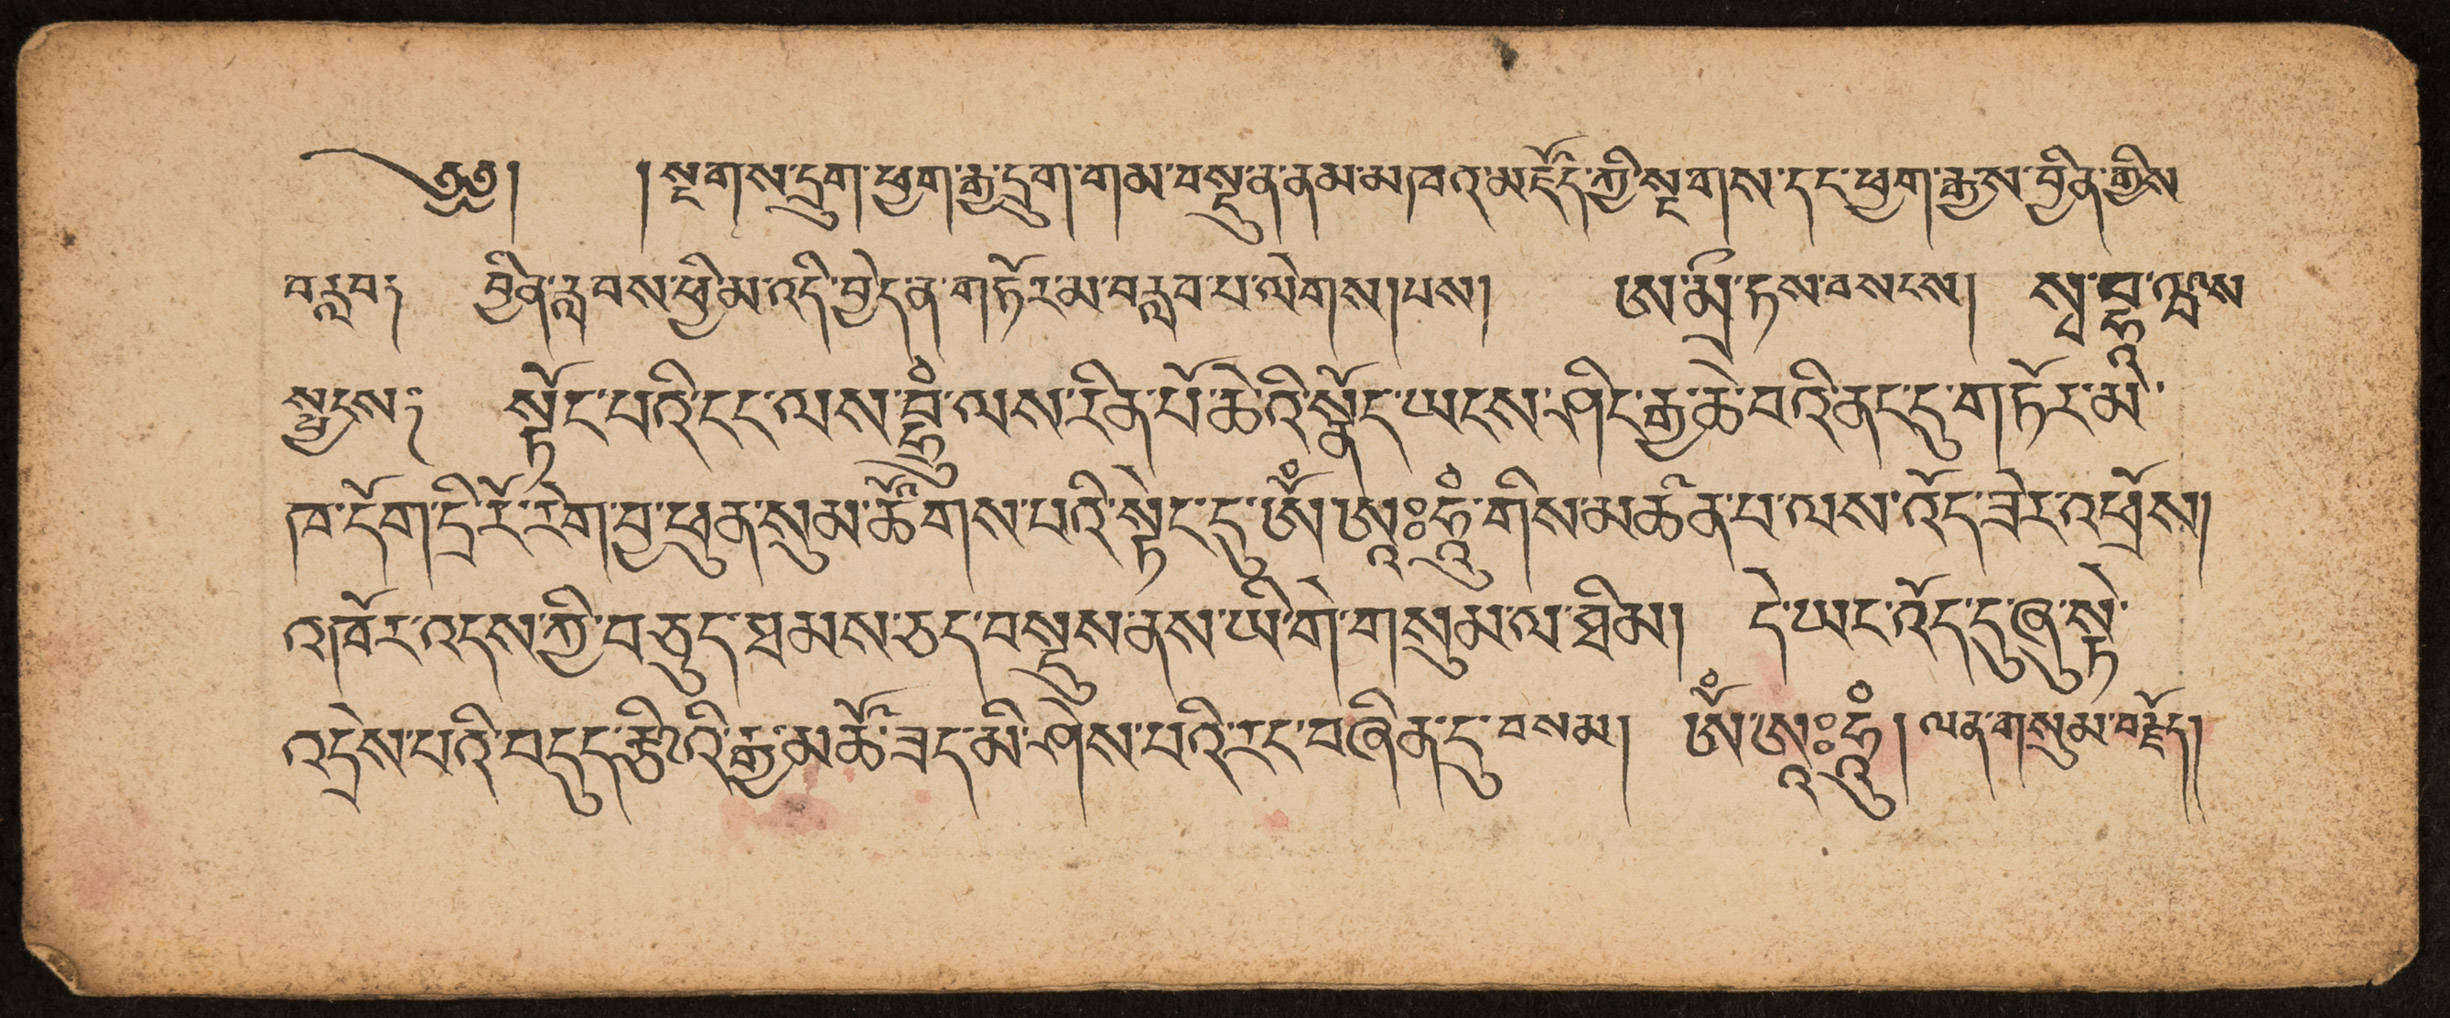 ༄༅། །སྔགས་དྲུག་ཕྱག་རྒྱ་དྲུག་གམ་བསྡུན་ནམ་མཁའ་མཛོད་ཀྱི་སྔགས་དང་ཕྱག་རྒྱས་བྱིན་གྱིས
བརླབ། བྱིན་རླབས་ཕྱིམ་འདི་བྱེད་ན་གཏོརམ་བརླབ་པ་ལེགས།པས། ཨ་མྲྀ་ཏས་བསངས། སྭ་བྷཱ་ཝས
སྦྱངས༔ སྟོང་པའི་ངང་ལས་བྷྲཱུྃ་ལས་རིན་པོ་ཆེའི་སྣོད་ཡངས་ཤིང་རྒྱ་ཆེ་བའི་ནང་དུ་གཏོར་མེ་
ཁ་དོག་དྲི་རོ་རེག་བྱ་ཕུན་སུམ་ཚོགས་པའི་སྟེང་དུ་ཨོཾ་ཨཱཿཧཱུྃ་གིས་མཚན་པ་ལས་འོད་ཟེར་འཕྲོས།
འཁོར་འདས་ཀྱི་བཅུད་ཐམས་ཅད་བསྡུས་ནས་ཡི་གེ་གསུམ་ལ་ཐིམ། དེ་ཡང་འོད་དུ་ཞུ་སྟེ་
འདྲེས་པའི་བདུད་རྩིའི་རྒྱ་མཚོ་ཟད་མི་ཤེས་པའི་རང་བཞིན་དུ་བསམ། ཨོཾ་ཨཱཿཧཱུྃ། ལན་གསུམ་བརྗོད།